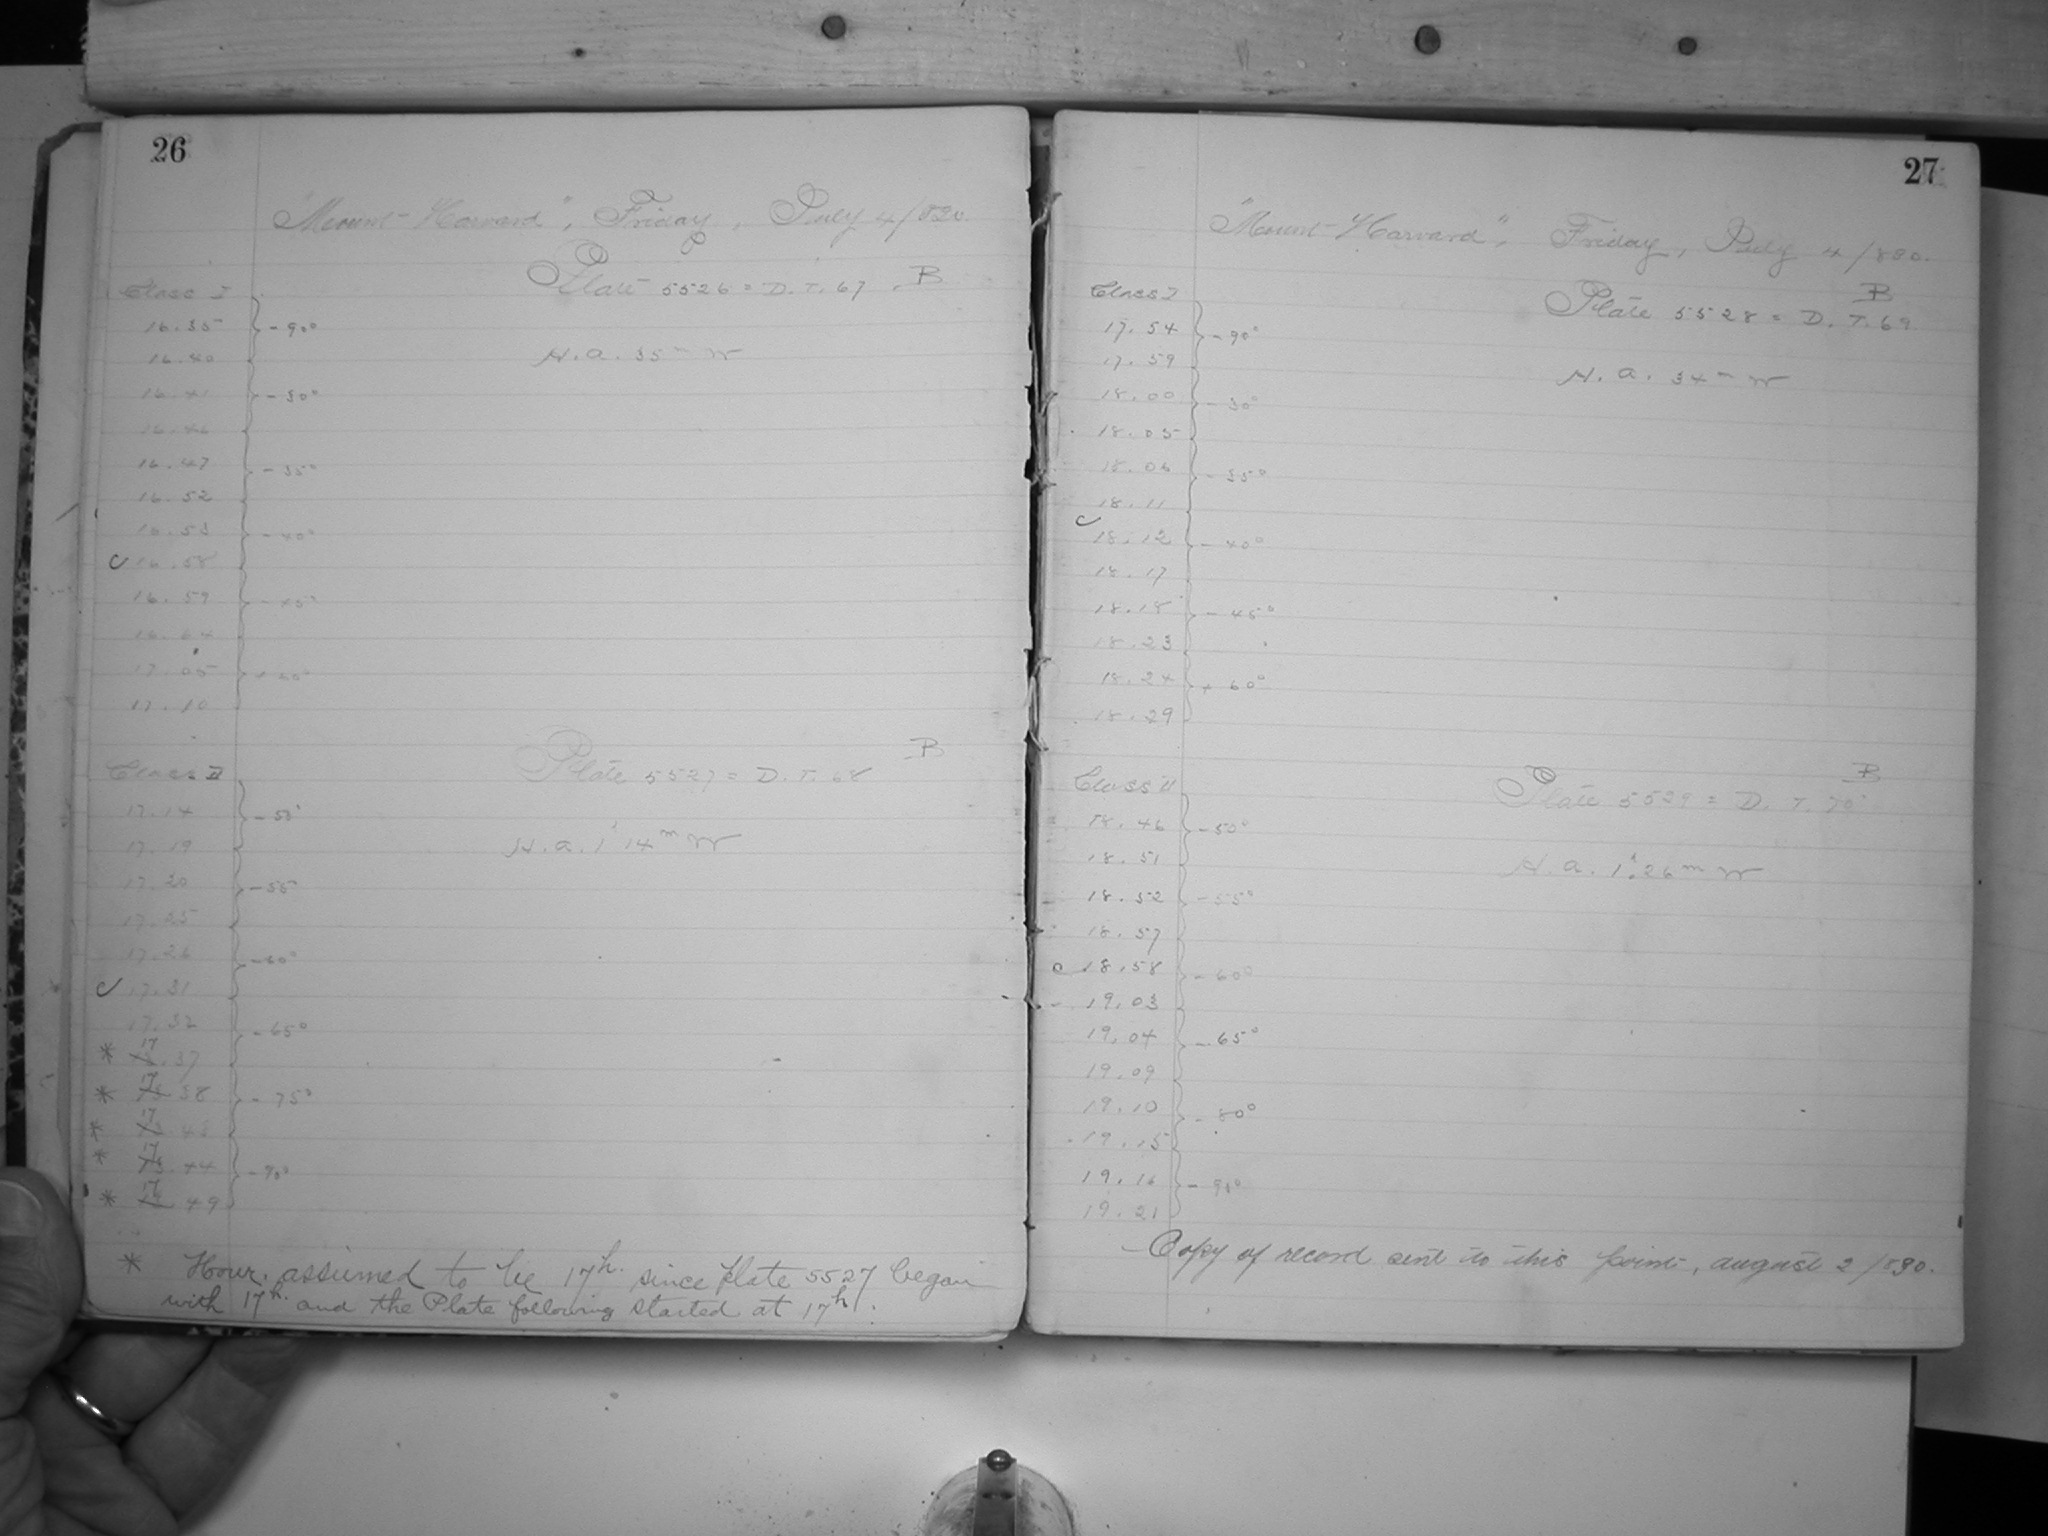 26
"Mount-Harvard", Friday, July 4/890.
Plate 5526 = D.T. 67 B
Class I
16.35 } -90°
H.a. 35m W
16.40
16.41 } -30°
16.46
16.47 } -35°
16.52
16.53 } -40°
16.58
16.59 } -45°
16.64
17.05
17.10
Plate 5527 = D.T. 68 B
Class II
17.14 } -50°
H.a. 1h 14m W
17.19
17.20 } -55°
17.25
17.26 } -60°
17.31
17.32 } -65°
* 17.37
* 17 38 } -75°
* 17.43
* 17.44 } -90°
* 17 49
* Hour assumed to be 17h. since plate 5527 began
with 17h. and the Plate following started at 17h.
27
"Mount-Harvard", Friday, July 4/890.
Class I
Plate 5528 = D.T. 69 B
17.54 } -90°
17.59
H.a. 34m W
18.00 } -30°
18.05
18.06 } -35°
18.11
18.12 } -40°
18.17
18.18 } -45°
18.23
18.24 } + 60°
18.29
Class II
Plate 5529 = D.T. 70 B
18.46 } -50°
18.51
H.a. 1h 26m W
18.52 } -55°
18.57
18.58 } -60°
19.03
19.04 } -65°
19.09
19.10 } -80°
19.15
19.16 } -90°
19.21
Copy of record sent to this point, august 2/890.